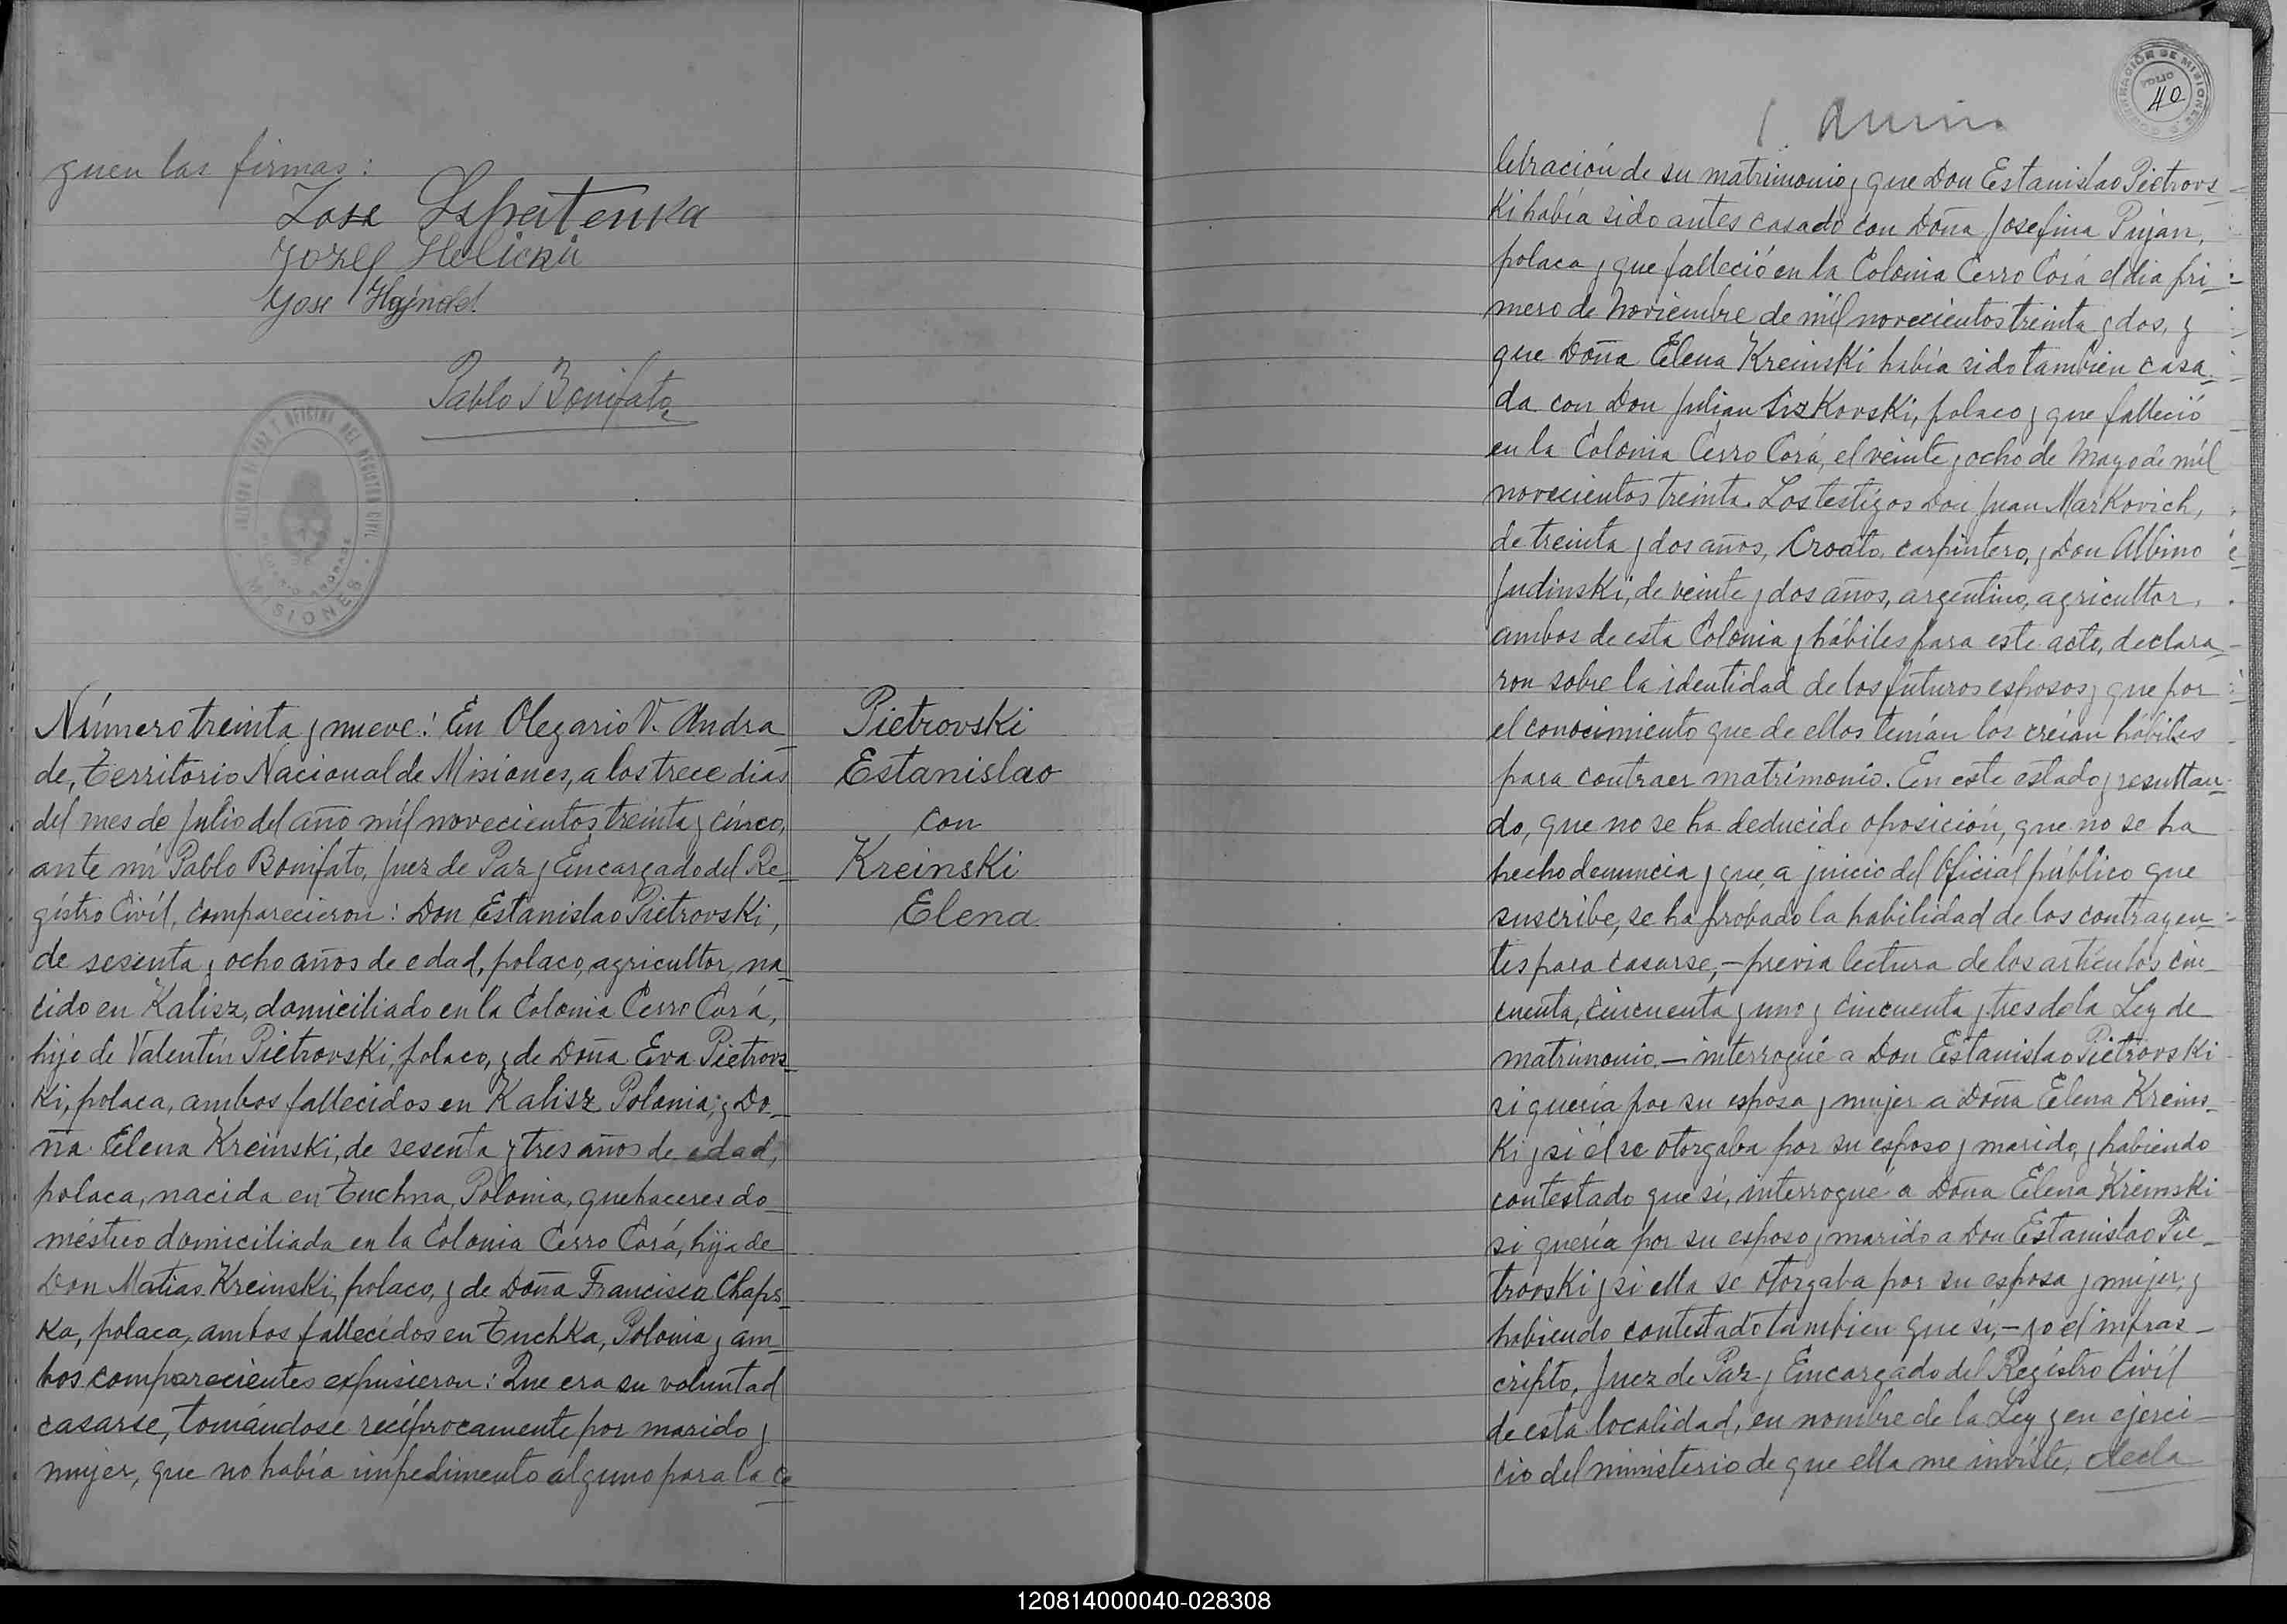 guen las firmas:
Jose
Jozef Holicki
Jose
Pablo Bonifato
MISIONES
Número treinta y nueve: En Olegario V. Andra
de, Territorio Nacional de Misiones, a los trece dias
del mes de Julio del año mil novecientos treinta y cinco,
ante mi Pablo Bonifato, Juez de Paz y Encargado del Re-
gistro Civil, comparecieron: Don Estanislao Pietrovski,
de sesenta y ocho años de edad, polaco, agricultor, na-
cido en Kalisz, domiciliado en la Colonia Cerro Corá,
hijo de Valentin Pietrovski, polaco, y de Doña Eva Pietrovs-
ki, polaca, ambos fallecidos en Kalisz Polonia; y Do-
ña Elena Kreinski, de sesenta y tres años de edad,
polaca, nacida en Tuchna, Polonia, quehaceres do-
méstico domiciliada en la Colonia Cerro Corá, hija de
Don Matias Kreinski, polaco, y de Doña Francisca Chaps-
ka, polaca, ambos fallecidos en Tuchka, Polonia y am-
bos comparecientes expusieron: Que era su voluntad
casarse, tomándose recíprocamente por marido y
mujer, que no había impedimento alguno para la ce
Pietrovski
Estanislao
con
Kreinski
Elena
GOBERNACIÓN DE MISIONES
FOLIO
40
lebración de su matrimonio, que Don Estanislao Pietrovs-
ki había sido antes casado con Doña Josefina Pujan,
polaca y que falleció en la Colonia Cerro Corá el dia pri-
mero de Noviembre de mil novecientos treinta y dos, y
que Doña Elena Kreinski había sido tambien casa-
da con Don Julian Siskovski, polaco y que falleció
en la Colonia Cerro Corá, el veinte y ocho de Mayo de mil
novecientos treinta. Los testigos Don Juan Markovich,
de treinta y dos años, Croato, carpintero, y Don Albino
Judinski, de veinte y dos años, argentino, agricultor,
ambos de esta Colonia y hábiles para este acto, declara-
ron sobre la identidad de los futuros esposos y que por
el conocimiento que de ellos tenían los creían hábiles
para contraer matrimonio. En este estado y resultan-
do, que no se ha deducido oposición, que no se ha
hecho denuncia y que, a juicio del Oficial público que
suscribe, se ha probado la habilidad de los contrayen-
tes para casarse, - previa lectura de los artículos cin-
cuenta, cincuenta y uno y cincuenta y tres de la Ley de
matrimonio - interrogué a Don Estanislao Pietrovski
si quería por su esposa y mujer a Doña Elena Kreins-
ki y si él se otorgaba por su esposo y marido, y habiendo
contestado que sí, interrogué a Doña Elena Kreinski
si quería por su esposo y marido a Don Estanislao Pie-
trovski y si ella se otorgaba por su esposa y mujer, y
habiendo contestado tambien que sí, - yo el infras-
cripto, Juez de Paz y Encargado del Registro Civil
de esta localidad, en nombre de la Ley y en ejerci-
cio del ministerio de que ella me inviste, decla
120814000040-028308